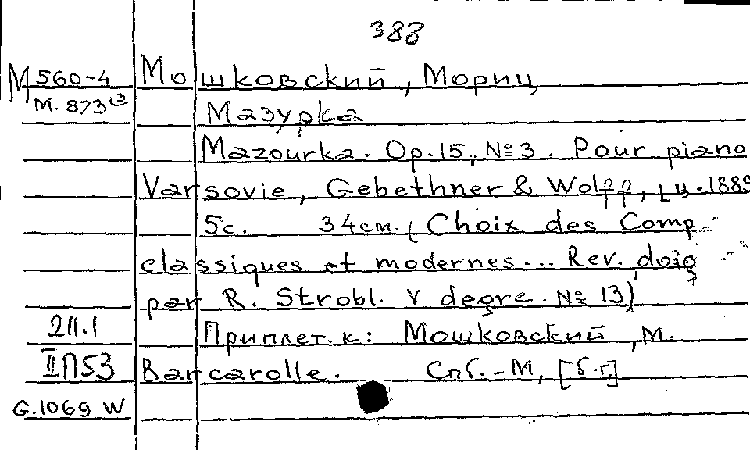 388
М 560-4 Мошковский, Мориц
М. 873 Мазурка
Mazourka. Op. 15, № 3. Pour piano
Varsovie, Gebethner & Wolff, ц. 1889
5с. 34см. (Choix des Comp.
classiques et modernes... Rev. doig
par R. Strobl. V degre. № 13)
2П.1 Приплет. к: Мошковский, М.
IIП53 Barcarolle. Спб.-М, [б.г.]
G.1069 W